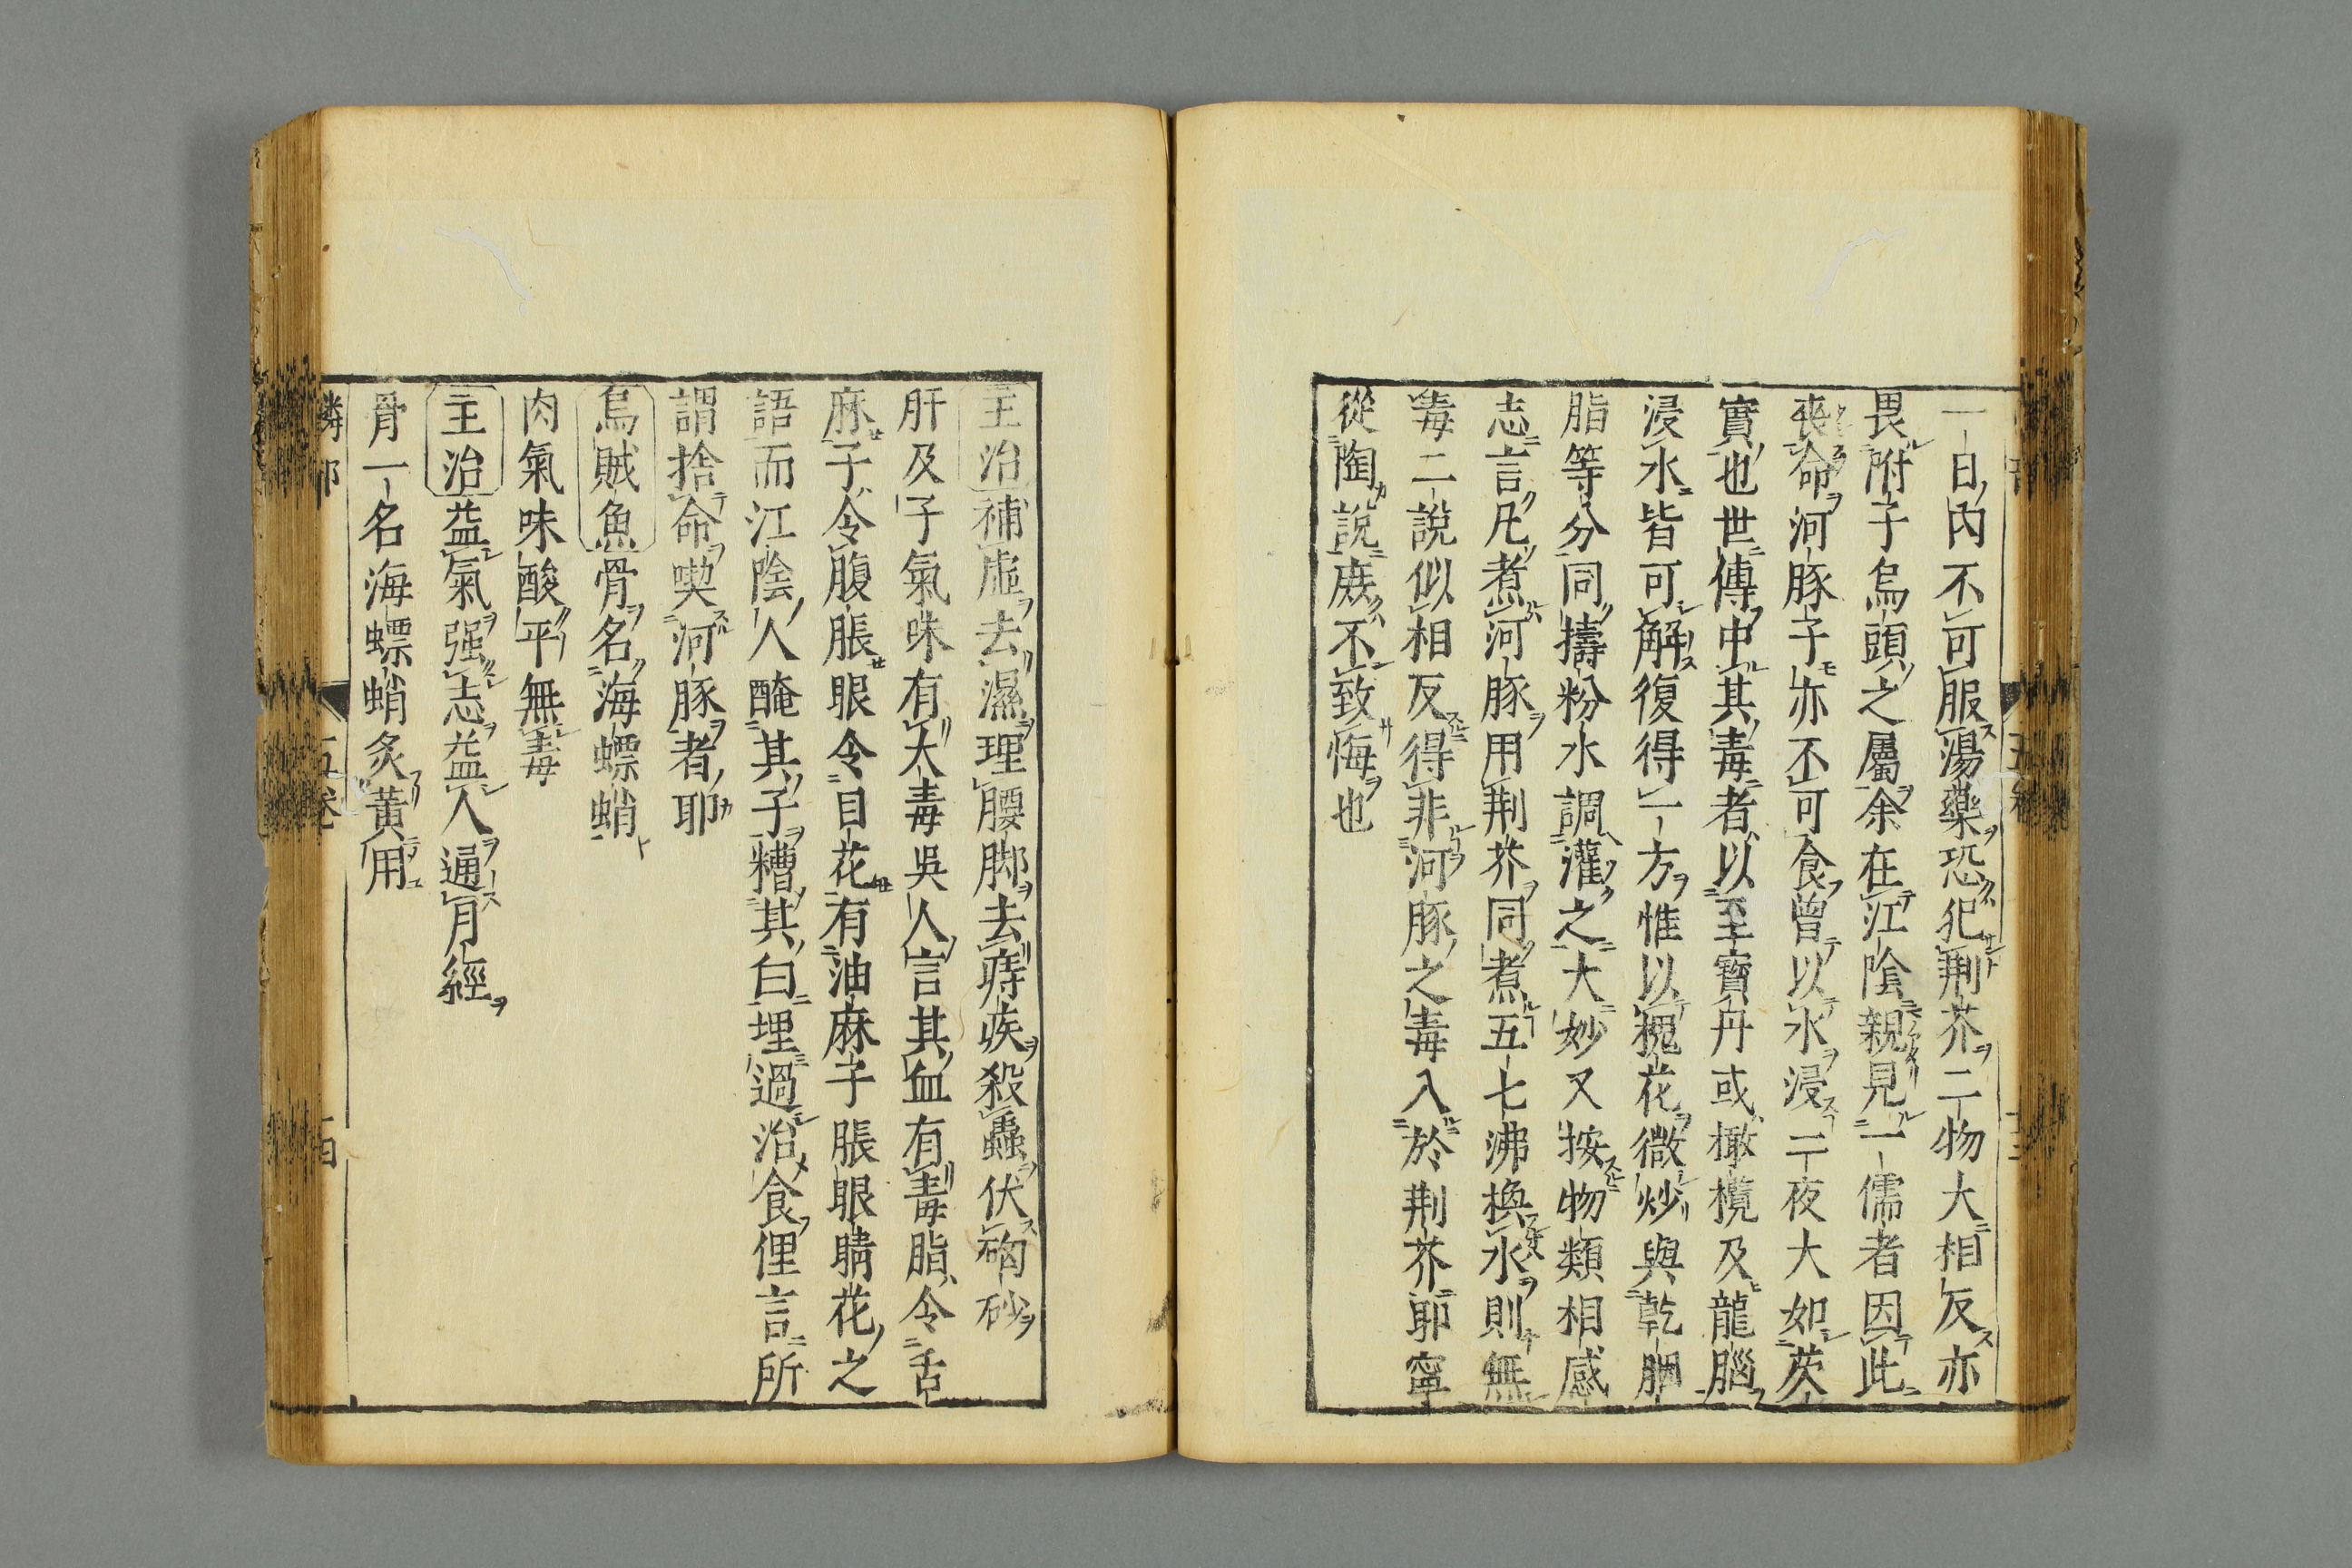 一日內不可服湯藥恐犯荆芥二物大相反亦
畏附子烏頭之屬余在江陰親見一儒者因此
喪命河豚子亦不可食曾以水浸二夜大如芡
實也世傳中其毒者以至寶丹或橄欖及龍腦
浸水皆可解復得一方惟以槐花微炒與乾胭
脂等分同擣粉水調灌之大妙又按物類相感
志言凡煮河豚用荆芥同煮五七沸換水則無
毒二說似相反得非河豚之毒入於荆芥耶寧
從陶說庶不致悔也
主治補虛去濕理腰脚去痔疾殺蟲伏硇砂
肝及子氣味有大毒吳人言其血有毒脂令舌
麻子令腹脹眼令目花有油麻子脹眼睛花之
語而江陰人醃其子糟其白埋過治食俚言所
謂捨命喫河豚者耶
烏賊魚骨名海螵蛸
肉氣味酸平無毒
主治益氣强志益人通月經
骨一名海螵蛸炙黃用
五卷